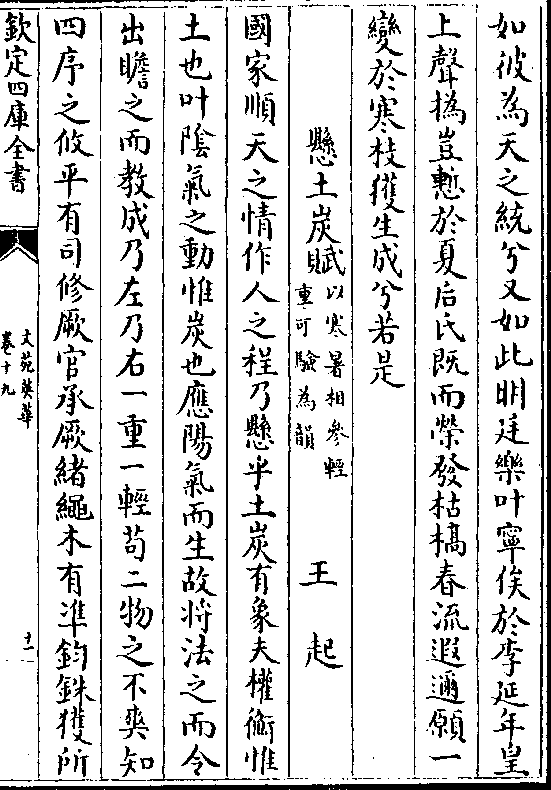 如彼為天之統兮又如此明廷樂叶寧俟於李延年皇
上聲𣟴豈慙於夏后氏既而榮發枯槁春流遐邇願一
變於寒枝獲生成兮若是
懸土炭賦以寒暑相參輕
重可驗為韻
王起
國家順天之情作人之程乃懸乎土炭有象夫權衡惟
土也叶陰氣之動惟炭也應陽氣而生故將法之而令
出瞻之而教成乃左乃右一重一輕苟二物之不爽知
四序之攸平有司修厥官承厥緒繩木有準鈞銖獲所
欽定四庫全書
文苑英華
卷十九
十一